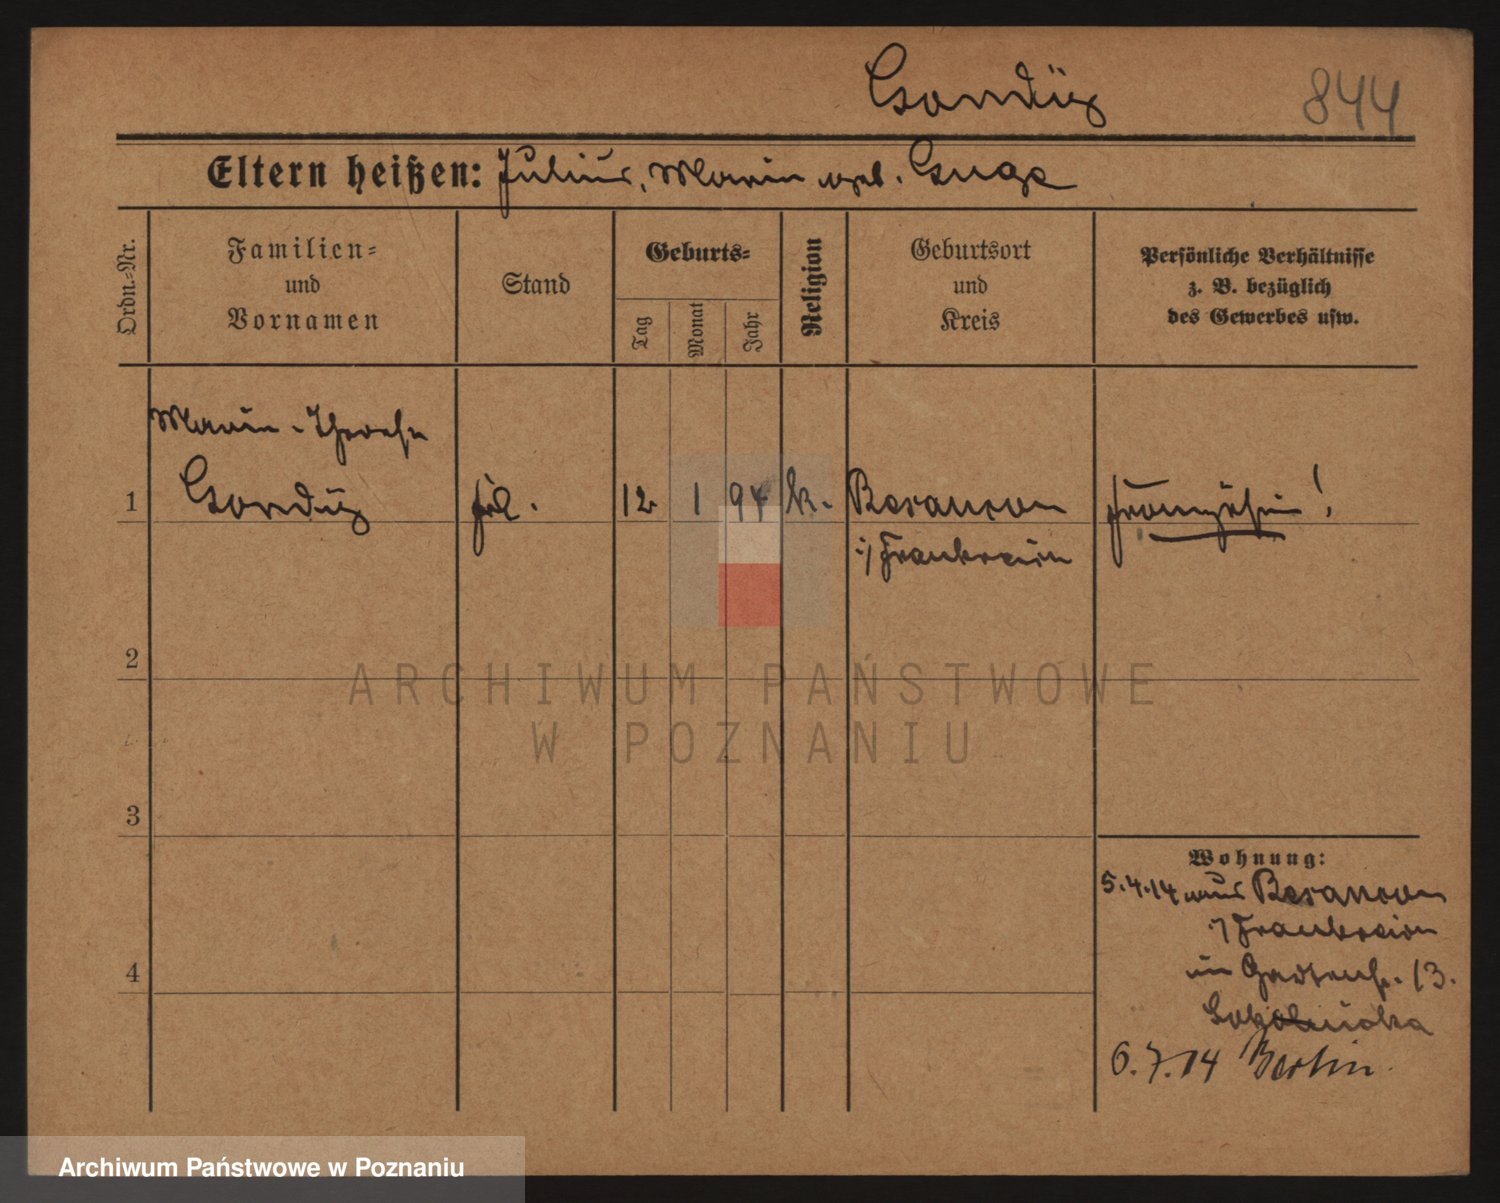 844
Eltern heißen: Julius, Marie geb.
Ordn.-Nr.
Familien-
und
Vornamen
Stand
Geburts-
Tag
Monat
Jahr
Religion
Geburtsort
und
Kreis
Persönliche Verhältnisse
z. B. bezüglich
des Gewerbes usw.
Marie-Therese
1 frl. 12 1 94 k. Besancon Französin!
i/ Frankreich
2
ARCHIWUM PAŃSTWOWE
W POZNANIU
3
Wohnung:
5.4.14 aus Besancon
i/ Frankreich
4
in 13.
6.7.14 Berlin.
Archiwum Państwowe w Poznaniu